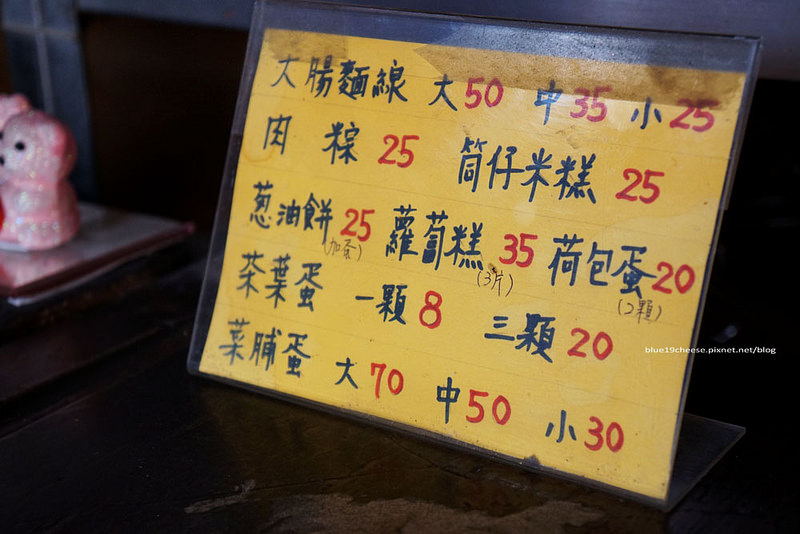 大腸麵線 大50 中35 小25
肉粽 25 筒仔米糕 25
蔥油餅 25 (加蛋) 蘿蔔糕 35 (3片) 荷包蛋 20 (2顆)
茶葉蛋 一顆 8 三顆 20
菜脯蛋 大70 中50 小30
blue19cheese.pixnet.net/blog